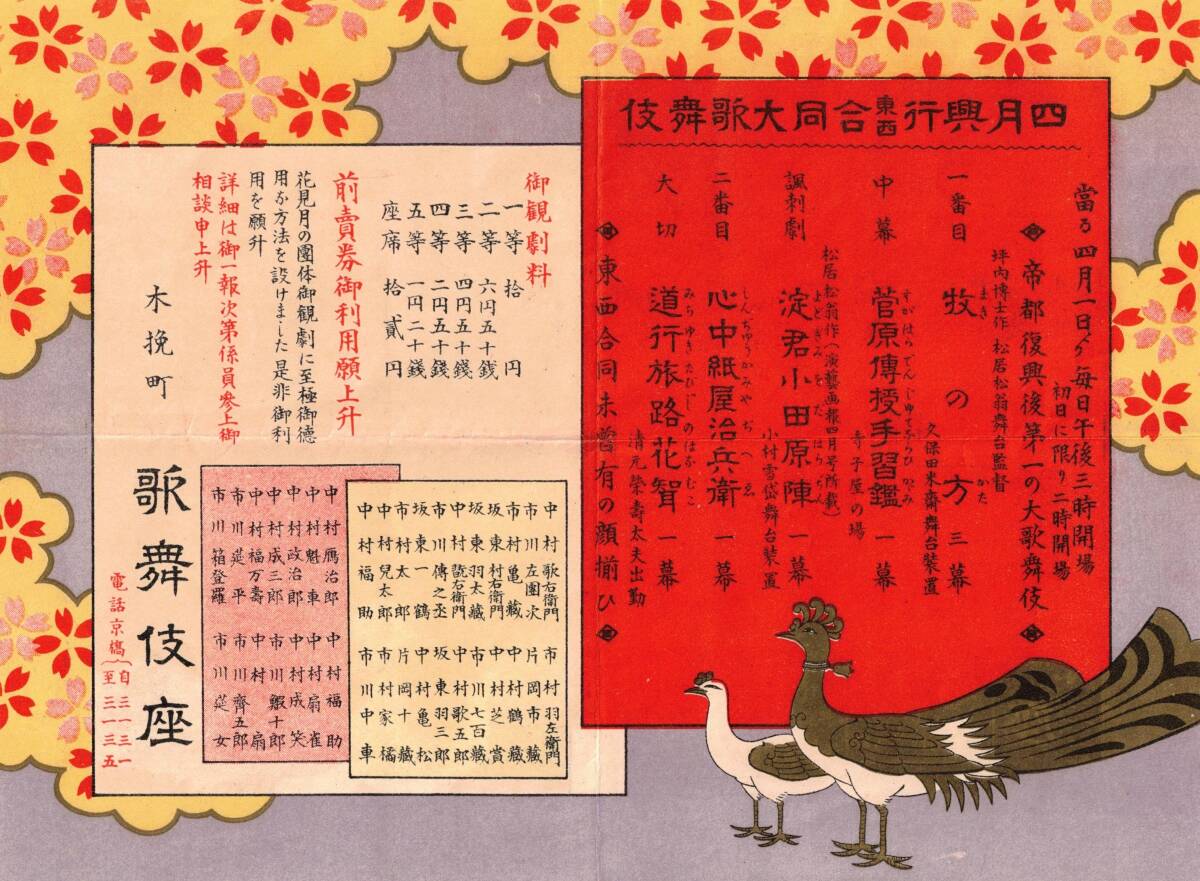 四月興行東西合同大歌舞伎
當る四月一日ゟ毎日午後三時開場
初日に限り二時開場
帝都復興後第一の大歌舞伎
坪内博士作 松居松翁舞台監督
一番目 牧の方 三幕
まき かた
久保田米齋舞台装置
中幕 菅原傳授手習鑑 一幕
すがはらでんじゆてならひかゞみ
寺子屋の場
松居松翁作(演藝画報四月号所載)
諷刺劇 淀君小田原陣 一幕
よどぎみをだはらぢん
小村雪岱舞台装置
二番目 心中紙屋治兵衛 一幕
しんぢゆうかみやぢへゑ
大切 道行旅路花聟 一幕
みちゆきたびぢのはなむこ
清元榮壽太夫出勤
東西合同未曾有の顔揃ひ
御観劇料
一等 拾円
二等 六円五十銭
三等 四円五十銭
四等 二円五十銭
五等 一円二十銭
座席 拾貳円
前賣券御利用願上升
花見月の團体御観劇に至極御徳
用な方法を設けました是非御利
用を願升
詳細は御一報次第係員参上御
相談申上升
中村歌右衛門 市村羽左衛門
市川左團次 片岡市藏
市村亀藏 中村鶴藏
坂東村右衛門 中村芝賞
坂東羽太藏 市川七百藏
中村翫右衛門 中村歌五郎
市川傳之丞 坂東羽三郎
坂東一鶴 中村亀松
市村太郎 片岡十藏
中村兒太郎 市村家橘
中村福助 市川中車
中村鴈治郎 中村福助
中村魁車 中村扇雀
中村政治郎 中村成笑
中村成三郎 市川蝦十郎
中村福万壽 中村扇
市川莚平 市川齊五郎
市川箱登羅 市川莚女
木挽町
歌舞伎座
電話京橋 自三一三一 至三一三五